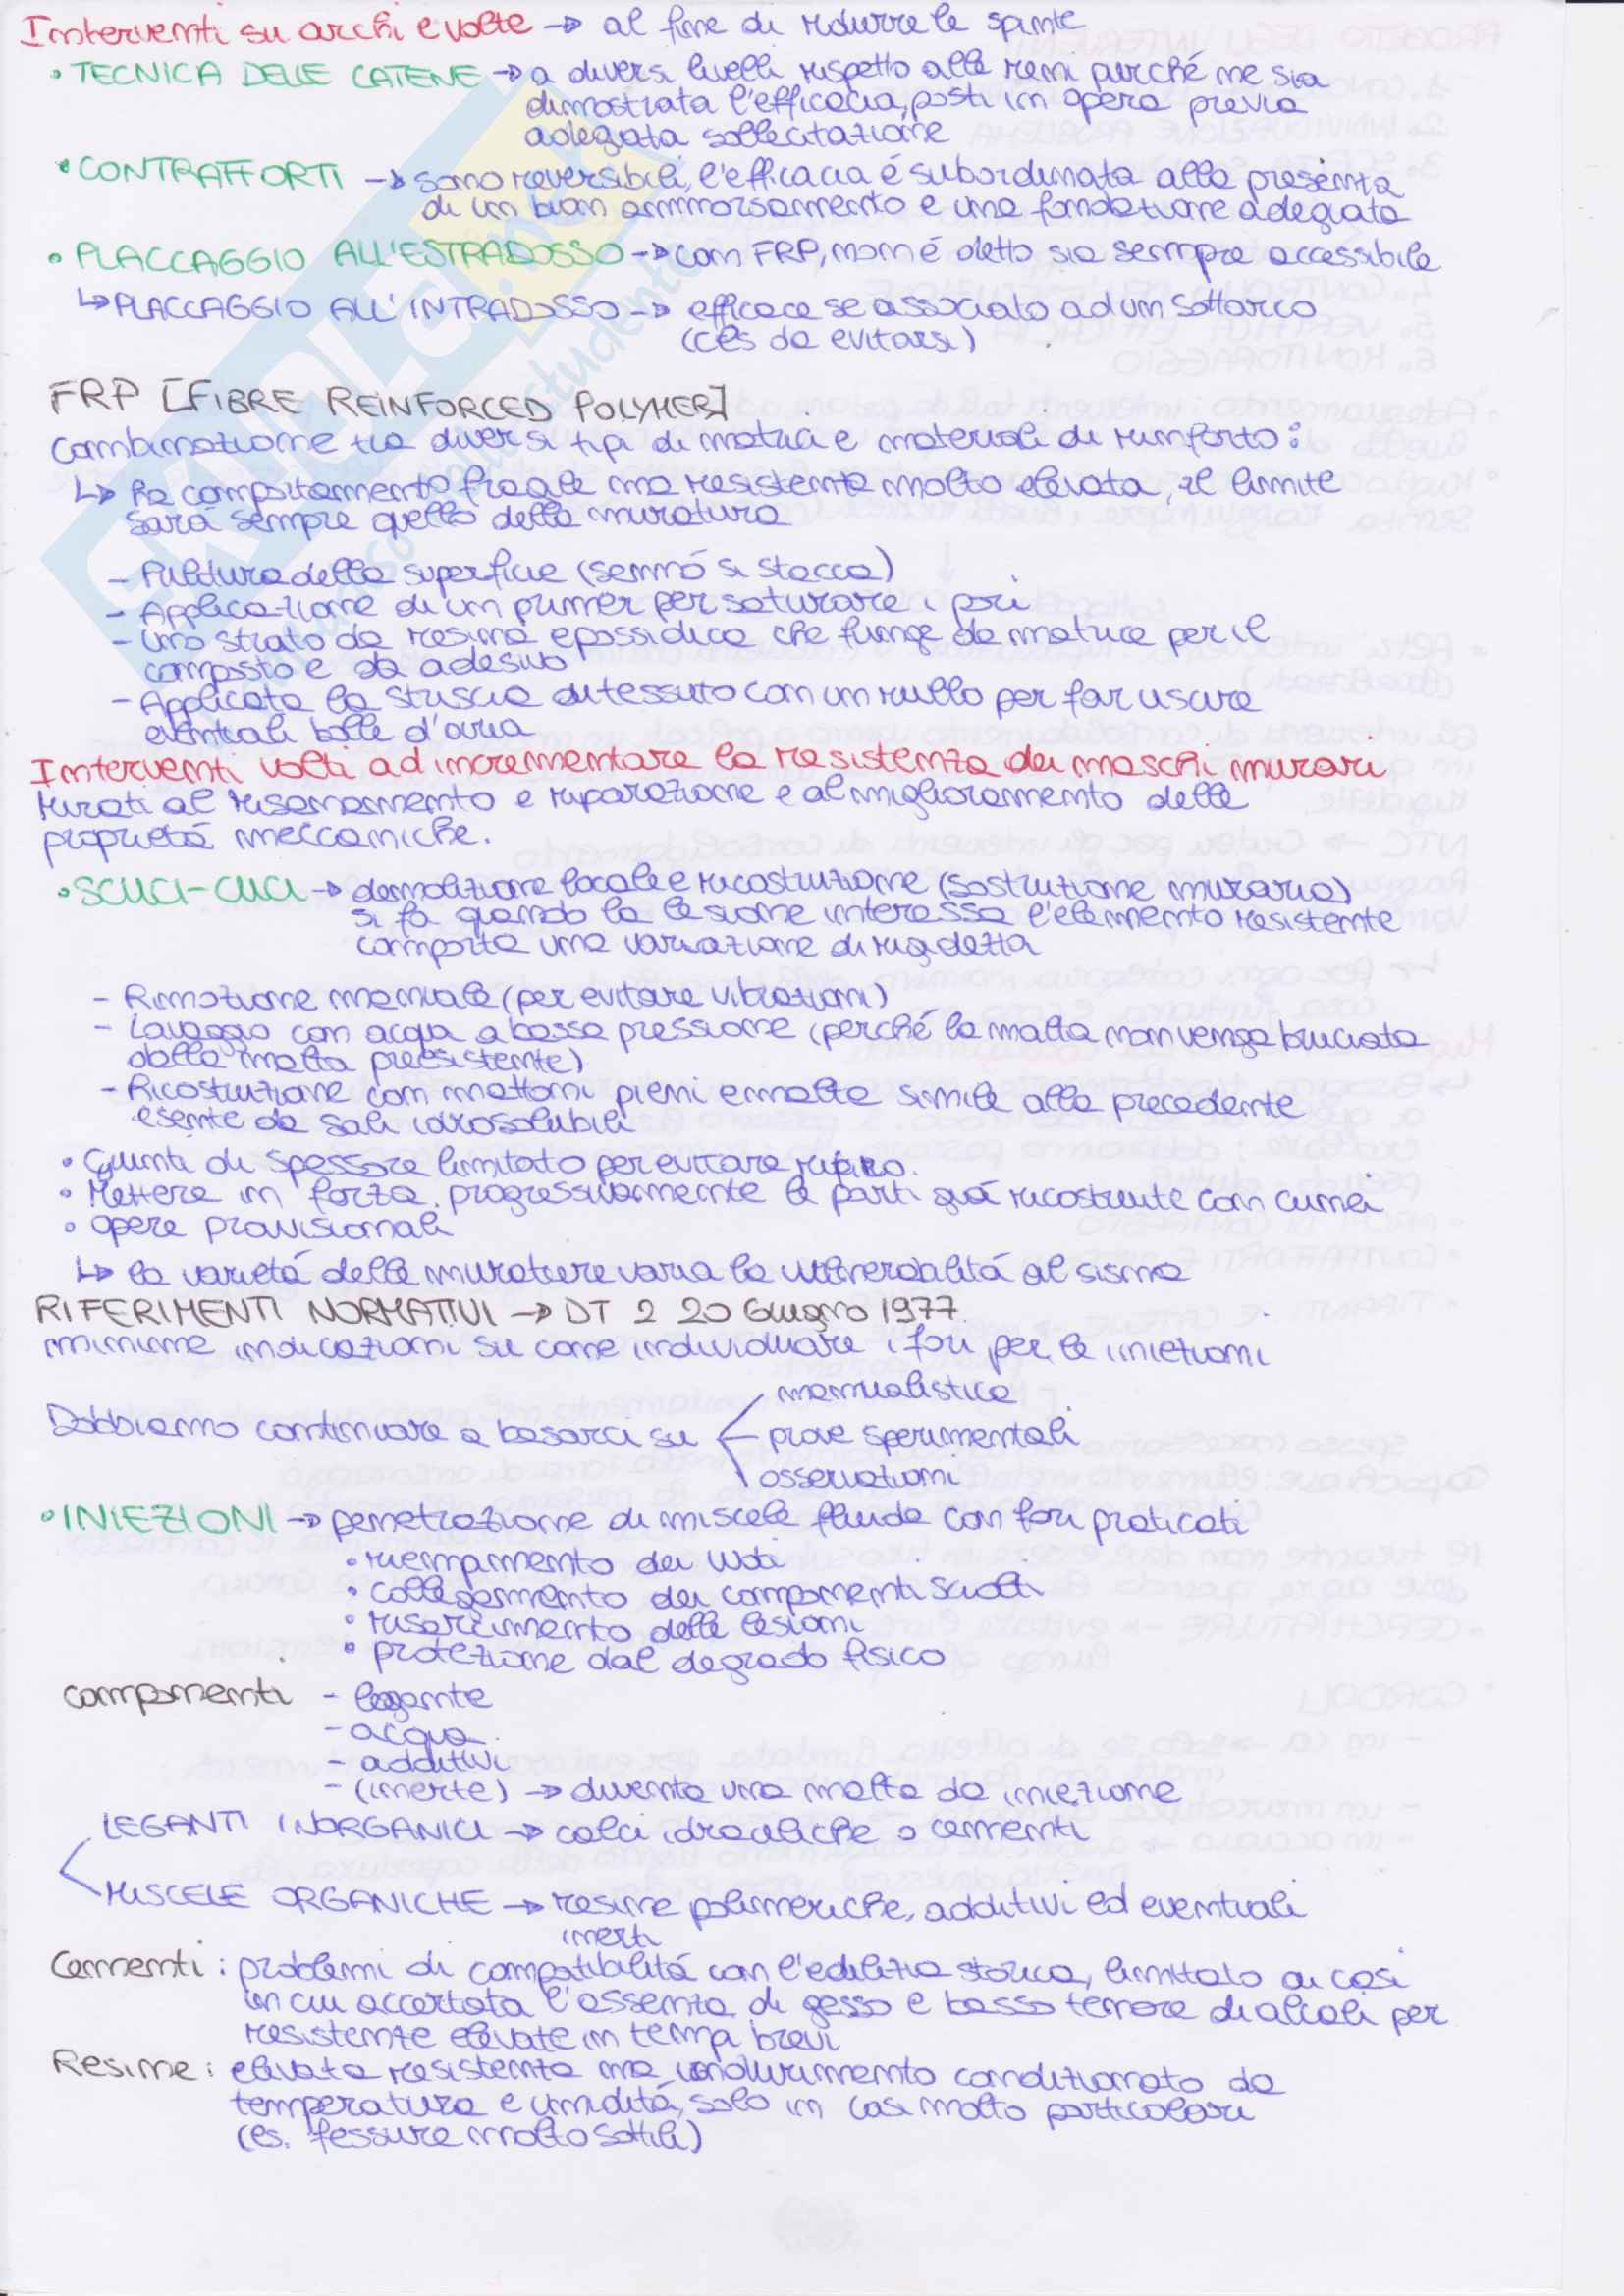 Interventi su archi e volte → al fine di ridurre le spinte
• TECNICA DELLE CATENE → a diversi livelli rispetto alle reni purché ne sia
dimostrata l'efficacia, posti in opera previa
adeguata sollecitazione
• CONTRAFFORTI → sono reversibili, l'efficacia é subordinata alla presenza
di un buon ammorsamento e una fondazione adeguata
• PLACCAGGIO ALL'ESTRADOSSO → con FRP, non é detto sia sempre accessibile
↳ PLACCAGGIO ALL'INTRADOSSO → efficace se associato ad un sottarco
(cls da evitarsi)
FRP [FIBRE REINFORCED POLYMER]
Combinazione tra diversi tipi di matrici e materiali di rinforzo:
↳ ha comportamento fragile ma resistenza molto elevata, il limite
sará sempre quello della muratura
- Pulitura della superficie (sennó si stacca)
- Applicazione di un primer per saturare i pori
- Uno strato da resina epossidica che funge da matrice per il
composto e da adesivo
- Applicata la striscia di tessuto con un rullo per far uscire
eventuali bolle d'aria
Interventi volti ad incrementare la resistenza dei maschi murari
Mirati al risanamento e riparazione e al miglioramento delle
proprietá meccaniche.
• SCUCI-CUCI → demolizione locale e ricostruzione (sostruzione muraria)
si fa quando la lesione interessa l'elemento resistente
comporta una variazione di rigidezza
- Rimozione manuale (per evitare vibrazioni)
- Lavaggio con acqua a bassa pressione (perché la malta non venga bruciata
dalla malta preesistente)
- Ricostruzione con mattoni pieni e malta simile alla precedente
esente da sali idrosolubili
• Giunti di spessore limitato per evitare ritiro.
• Mettere in forza progressivamente le parti giá ricostruite con cunei
• Opere provisionali
↳ la varietá delle murature varia la vulnerabilitá al sisma
RIFERIMENTI NORMATIVI → DT 2 20 Giugno 1977
minime indicazioni su come individuare i fori per le iniezioni
manualistica
Dobbiamo continuare a basarci su
prove sperimentali
osservazioni
• INIEZIONI → penetrazione di miscele fluide con fori praticati
• riempimento dei vuoti
• collegamento dei componenti sciolti
• risarcimento delle lesioni
• protezione dal degrado fisico
componenti - legante
- acqua
- additivi
- (inerte) → diventa una malta da iniezione
LEGANTI INORGANICI → calci idrauliche o cementi
MISCELE ORGANICHE → resine polimeriche, additivi ed eventuali
inerti
Cementi: problemi di compatibilitá con l'edilizia storica, limitato ai casi
in cui accertata l'assenza di gesso e basso tenore di alcali per
resistenze elevate in tempi brevi
Resine: elevata resistenza ma indurimento condizionato da
temperatura e umiditá, solo in casi molto particolari
(es. fessure molto sottili)